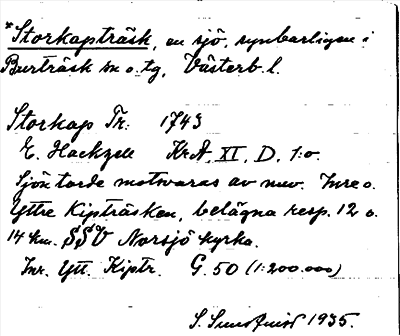 *Storkapträsk, en sjö, synbarligen i
Burträsk sn o. tg, Västerb. l.
Storkap Tr. 1743
E. Hackzell KrA, XI, D, 1:o.
Sjön torde motsvaras av nuv. Inre o.
Yttre Kipträsken, belägna resp. 12 o.
14 km. SSV Norsjö kyrka.
Inr. Ytt. Kiptr. G. 50 (1:200.000)
S. Sundqvist 1935.